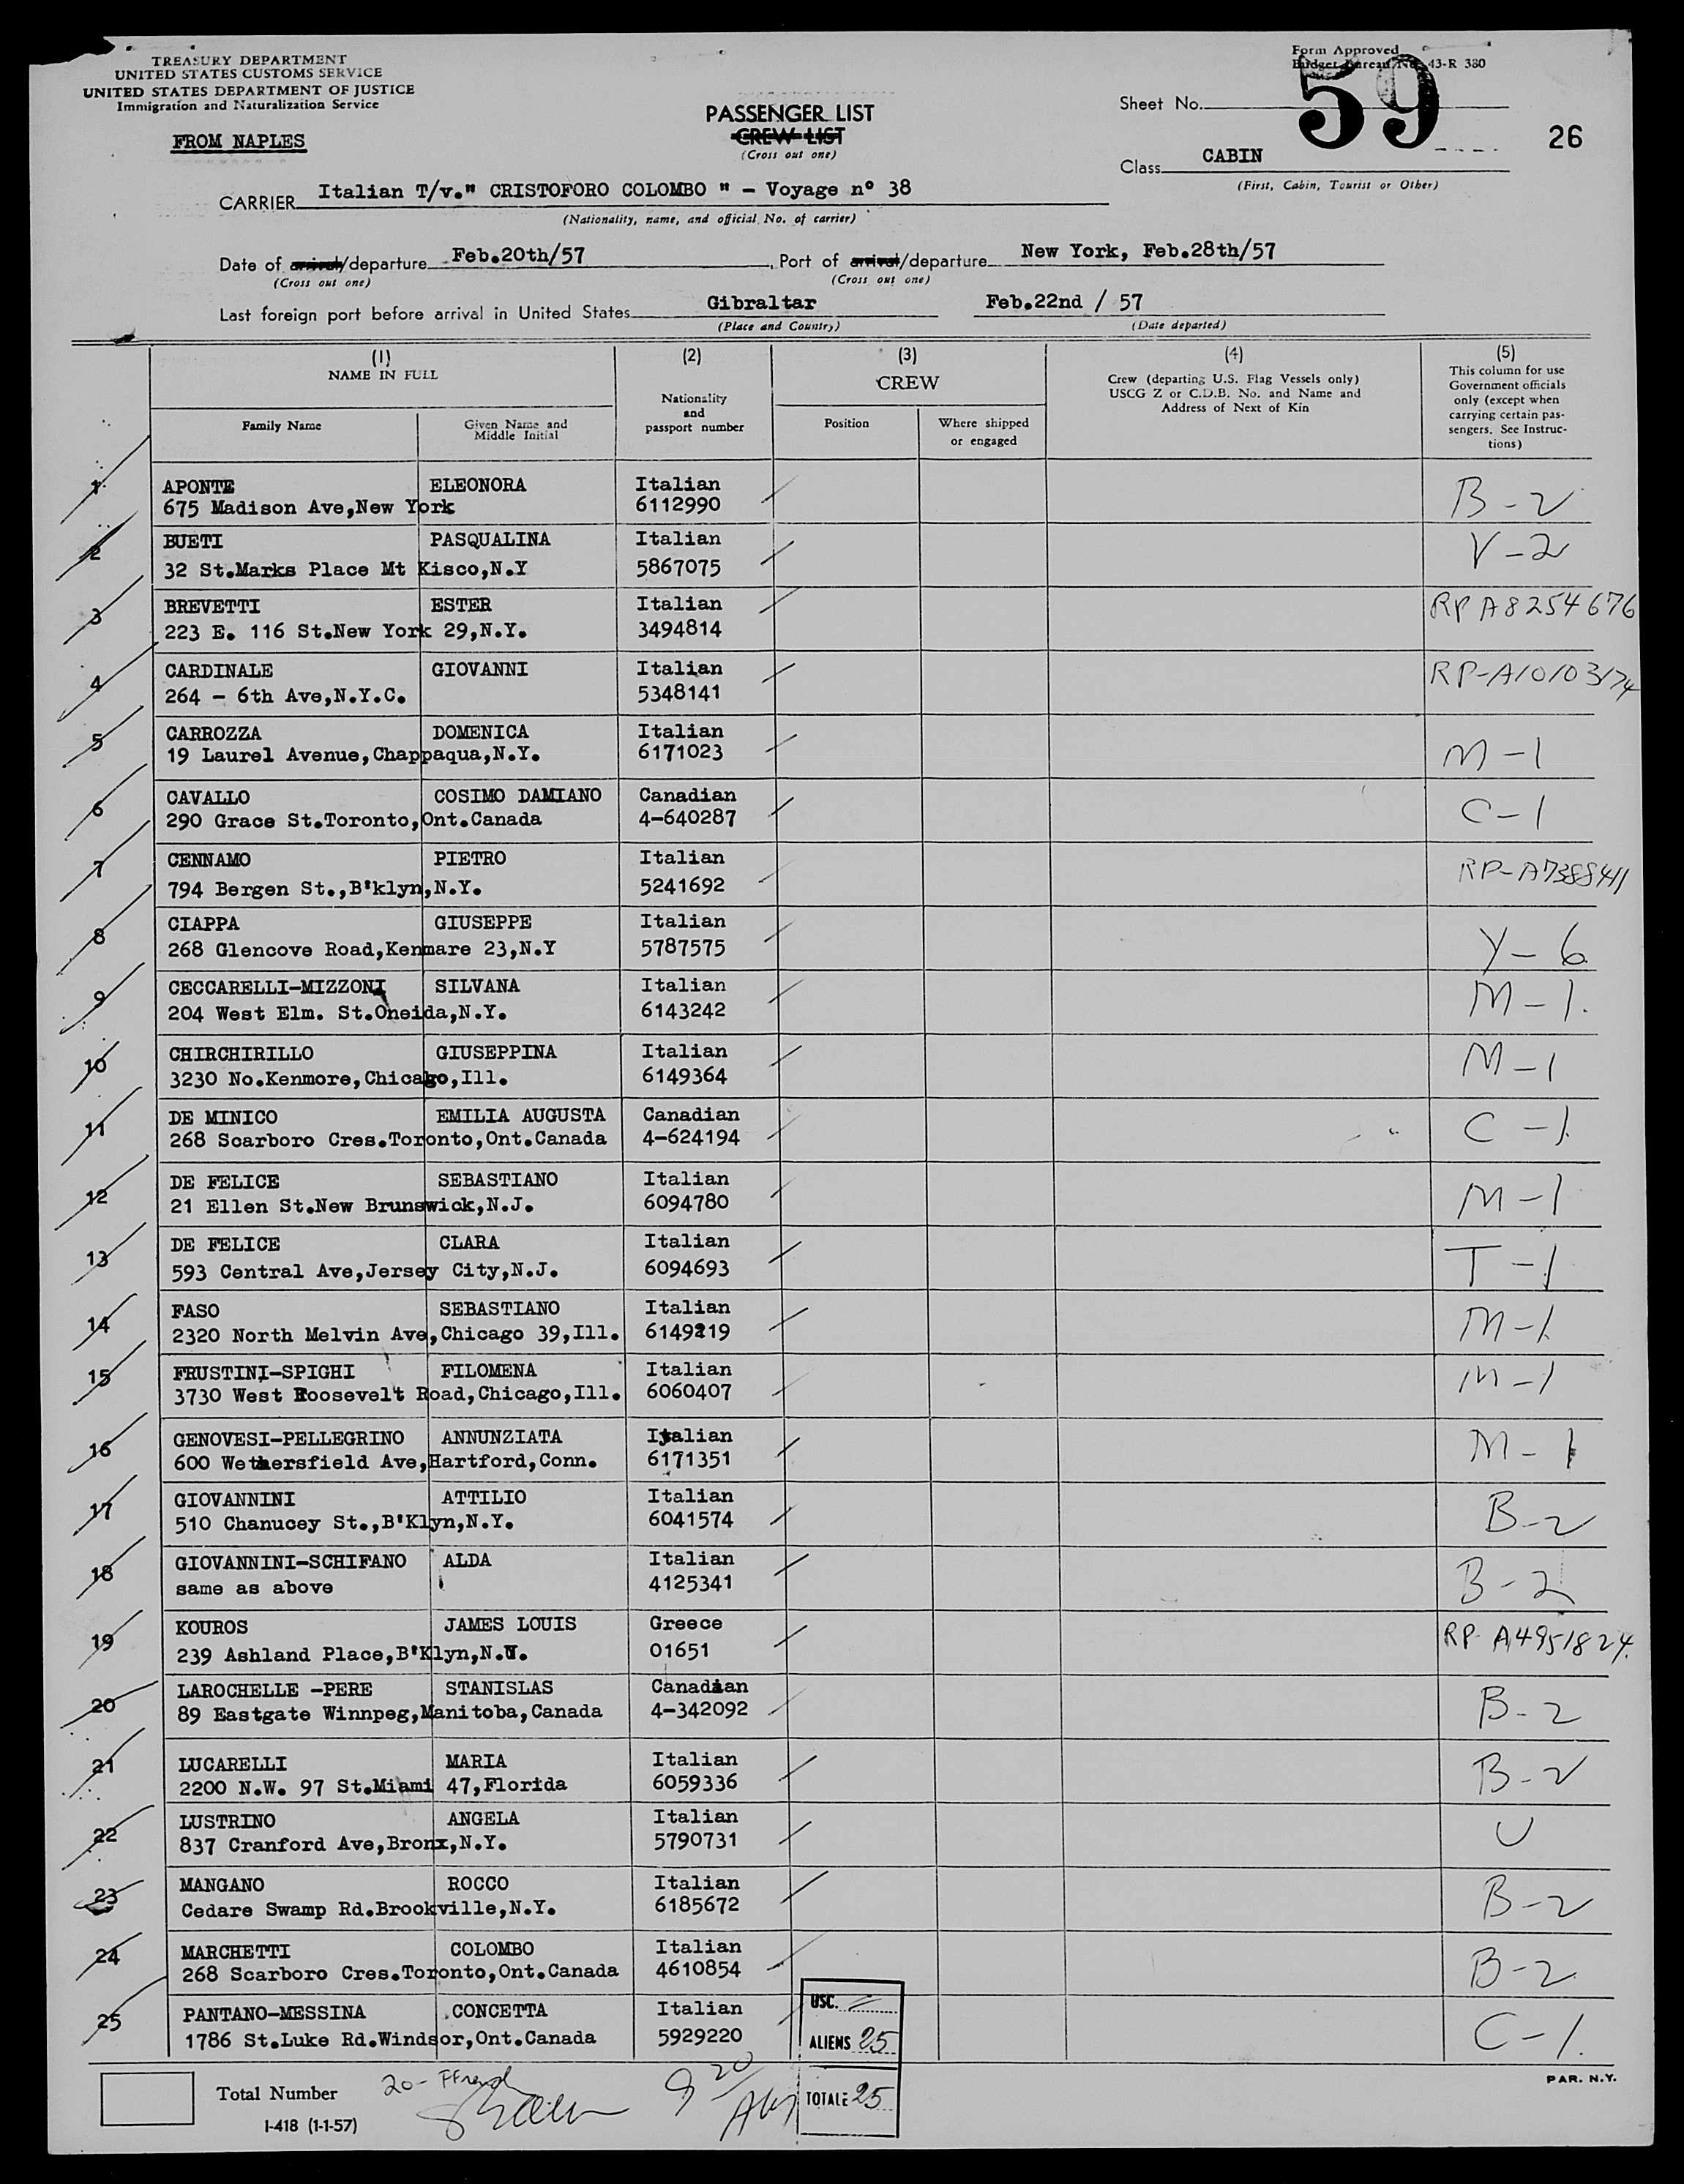 TREASURY DEPARTMENT
UNITED STATES CUSTOMS SERVICE
UNITED STATES DEPARTMENT OF JUSTICE
Immigration and Naturalization Service
FROM NAPLES
PASSENGER LIST
CREW LIST
(Cross out one)
Form Approved
Budget Bureau No. 43-R 380
Sheet No.
59
26
Class CABIN
(First, Cabin, Tourist or Other)
CARRIER Italian T/v." CRISTOFORO COLOMBO " - Voyage n° 38
(Nationality, name, and official No. of carrier)
Date of arrival/departure Feb.20th/57, Port of arrival/departure New York, Feb.28th/57
(Cross out one) (Cross out one)
Last foreign port before arrival in United States Gibraltar Feb.22nd / 57
(Place and Country) (Date departed)
(1) (2) (3) (4) (5)
NAME IN FULL
Family Name
Given Name and
Middle Initial
Nationality
and
passport number
CREW
Position
Where shipped
or engaged
Crew (departing U.S. Flag Vessels only)
USCG Z or C.D.B. No. and Name and
Address of Next of Kin
This column for use
Government officials
only (except when
carrying certain pas-
sengers. See Instruc-
tions)
1 APONTE ELEONORA Italian B-2
675 Madison Ave,New York 6112990
2 BUETI PASQUALINA Italian V-2
32 St.Marks Place Mt Kisco,N.Y 5867075
3 BREVETTI ESTER Italian RP A8254676
223 E. 116 St.New York 29,N.Y. 3494814
4 CARDINALE GIOVANNI Italian RP-A10103174
264 - 6th Ave,N.Y.C. 5348141
5 CARROZZA DOMENICA Italian M-1
19 Laurel Avenue,Chappaqua,N.Y. 6171023
6 CAVALLO COSIMO DAMIANO Canadian C-1
290 Grace St.Toronto,Ont.Canada 4-640287
7 CENNAMO PIETRO Italian RP-A7388411
794 Bergen St.,B'klyn,N.Y. 5241692
8 CIAPPA GIUSEPPE Italian Y-6
268 Glencove Road,Kenmare 23,N.Y 5787575
9 CECCARELLI-MIZZONI SILVANA Italian M-1.
204 West Elm. St.Oneida,N.Y. 6143242
10 CHIRCHIRILLO GIUSEPPINA Italian M-1
3230 No.Kenmore,Chicago,Ill. 6149364
11 DE MINICO EMILIA AUGUSTA Canadian C-1.
268 Scarboro Cres.Toronto,Ont.Canada 4-624194
12 DE FELICE SEBASTIANO Italian M-1
21 Ellen St.New Brunswick,N.J. 6094780
13 DE FELICE CLARA Italian T-1
593 Central Ave,Jersey City,N.J. 6094693
14 FASO SEBASTIANO Italian M-1.
2320 North Melvin Ave,Chicago 39,Ill. 6149219
15 FRUSTINI-SPIGHI FILOMENA Italian M-1
3730 West Roosevelt Road,Chicago,Ill. 6060407
16 GENOVESI-PELLEGRINO ANNUNZIATA Italian M-1
600 Wethersfield Ave,Hartford,Conn. 6171351
17 GIOVANNINI ATTILIO Italian B-2
510 Chanucey St.,B'Klyn,N.Y. 6041574
18 GIOVANNINI-SCHIFANO ALDA Italian B-2
same as above 4125341
19 KOUROS JAMES LOUIS Greece RP A4951824.
239 Ashland Place,B'Klyn,N.Y. 01651
20 LAROCHELLE -PERE STANISLAS Canadian B-2
89 Eastgate Winnpeg,Manitoba,Canada 4-342092
21 LUCARELLI MARIA Italian B-2
2200 N.W. 97 St.Miami 47,Florida 6059336
22 LUSTRINO ANGELA Italian U
837 Cranford Ave,Bronx,N.Y. 5790731
23 MANGANO ROCCO Italian B-2
Cedare Swamp Rd.Brookville,N.Y. 6185672
24 MARCHETTI COLOMBO Italian B-2
268 Scarboro Cres.Toronto,Ont.Canada 4610854
25 PANTANO-MESSINA CONCETTA Italian C-1.
1786 St.Luke Rd.Windsor,Ont.Canada 5929220
USC.
ALIENS 25
TOTALE 25
PAR. N.Y.
Total Number 20-
I-418 (1-1-57)